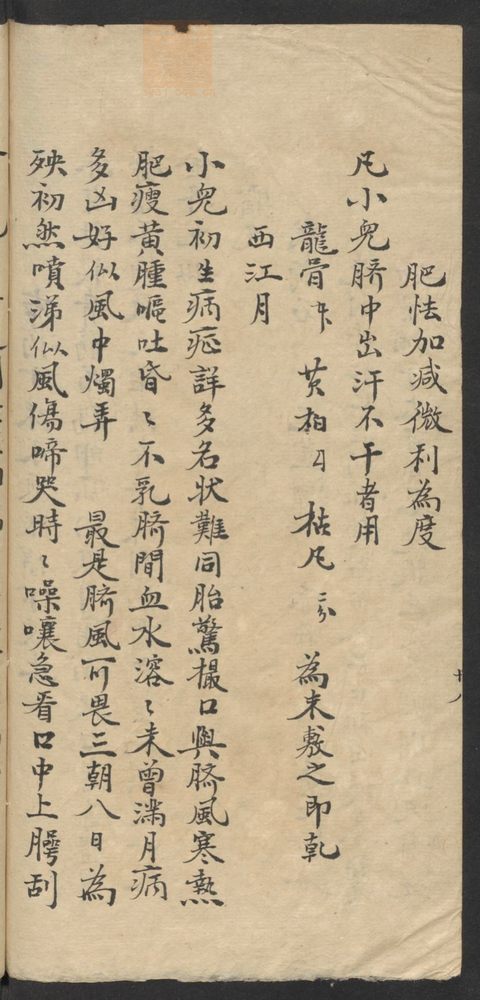 肥怯加减微利為度
凡小兒臍中出汗不干者用
龍骨 黄柏 枯凡 三分 為末敷之即乾
西江月
小兒初生病症詳多名状難同胎驚撮口與臍風寒熱
肥瘦黄腫嘔吐昏〻不乳臍間血水溶〻未曾滿月病
多凶好似風中燭弄 最是臍風可畏三朝八日為
殃初然噴涕似風傷啼哭時〻噪嚷急看口中上腭刮
廿八